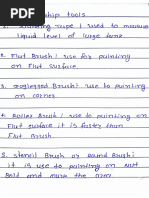 ship tools
1. Sounding rupe I used to measure
liquid level of large tank.
2. Flut Brush: use for puinting
on Flut surface.
3. Doglegged Brush: use to puinting
on corner.
4. Roller Brush / use to puinting on
Flut surface it is fuster then
Flut Brush
5. Stencil Brush or Round Brush:
it is use to puinting on nut
Bold and murk the arm